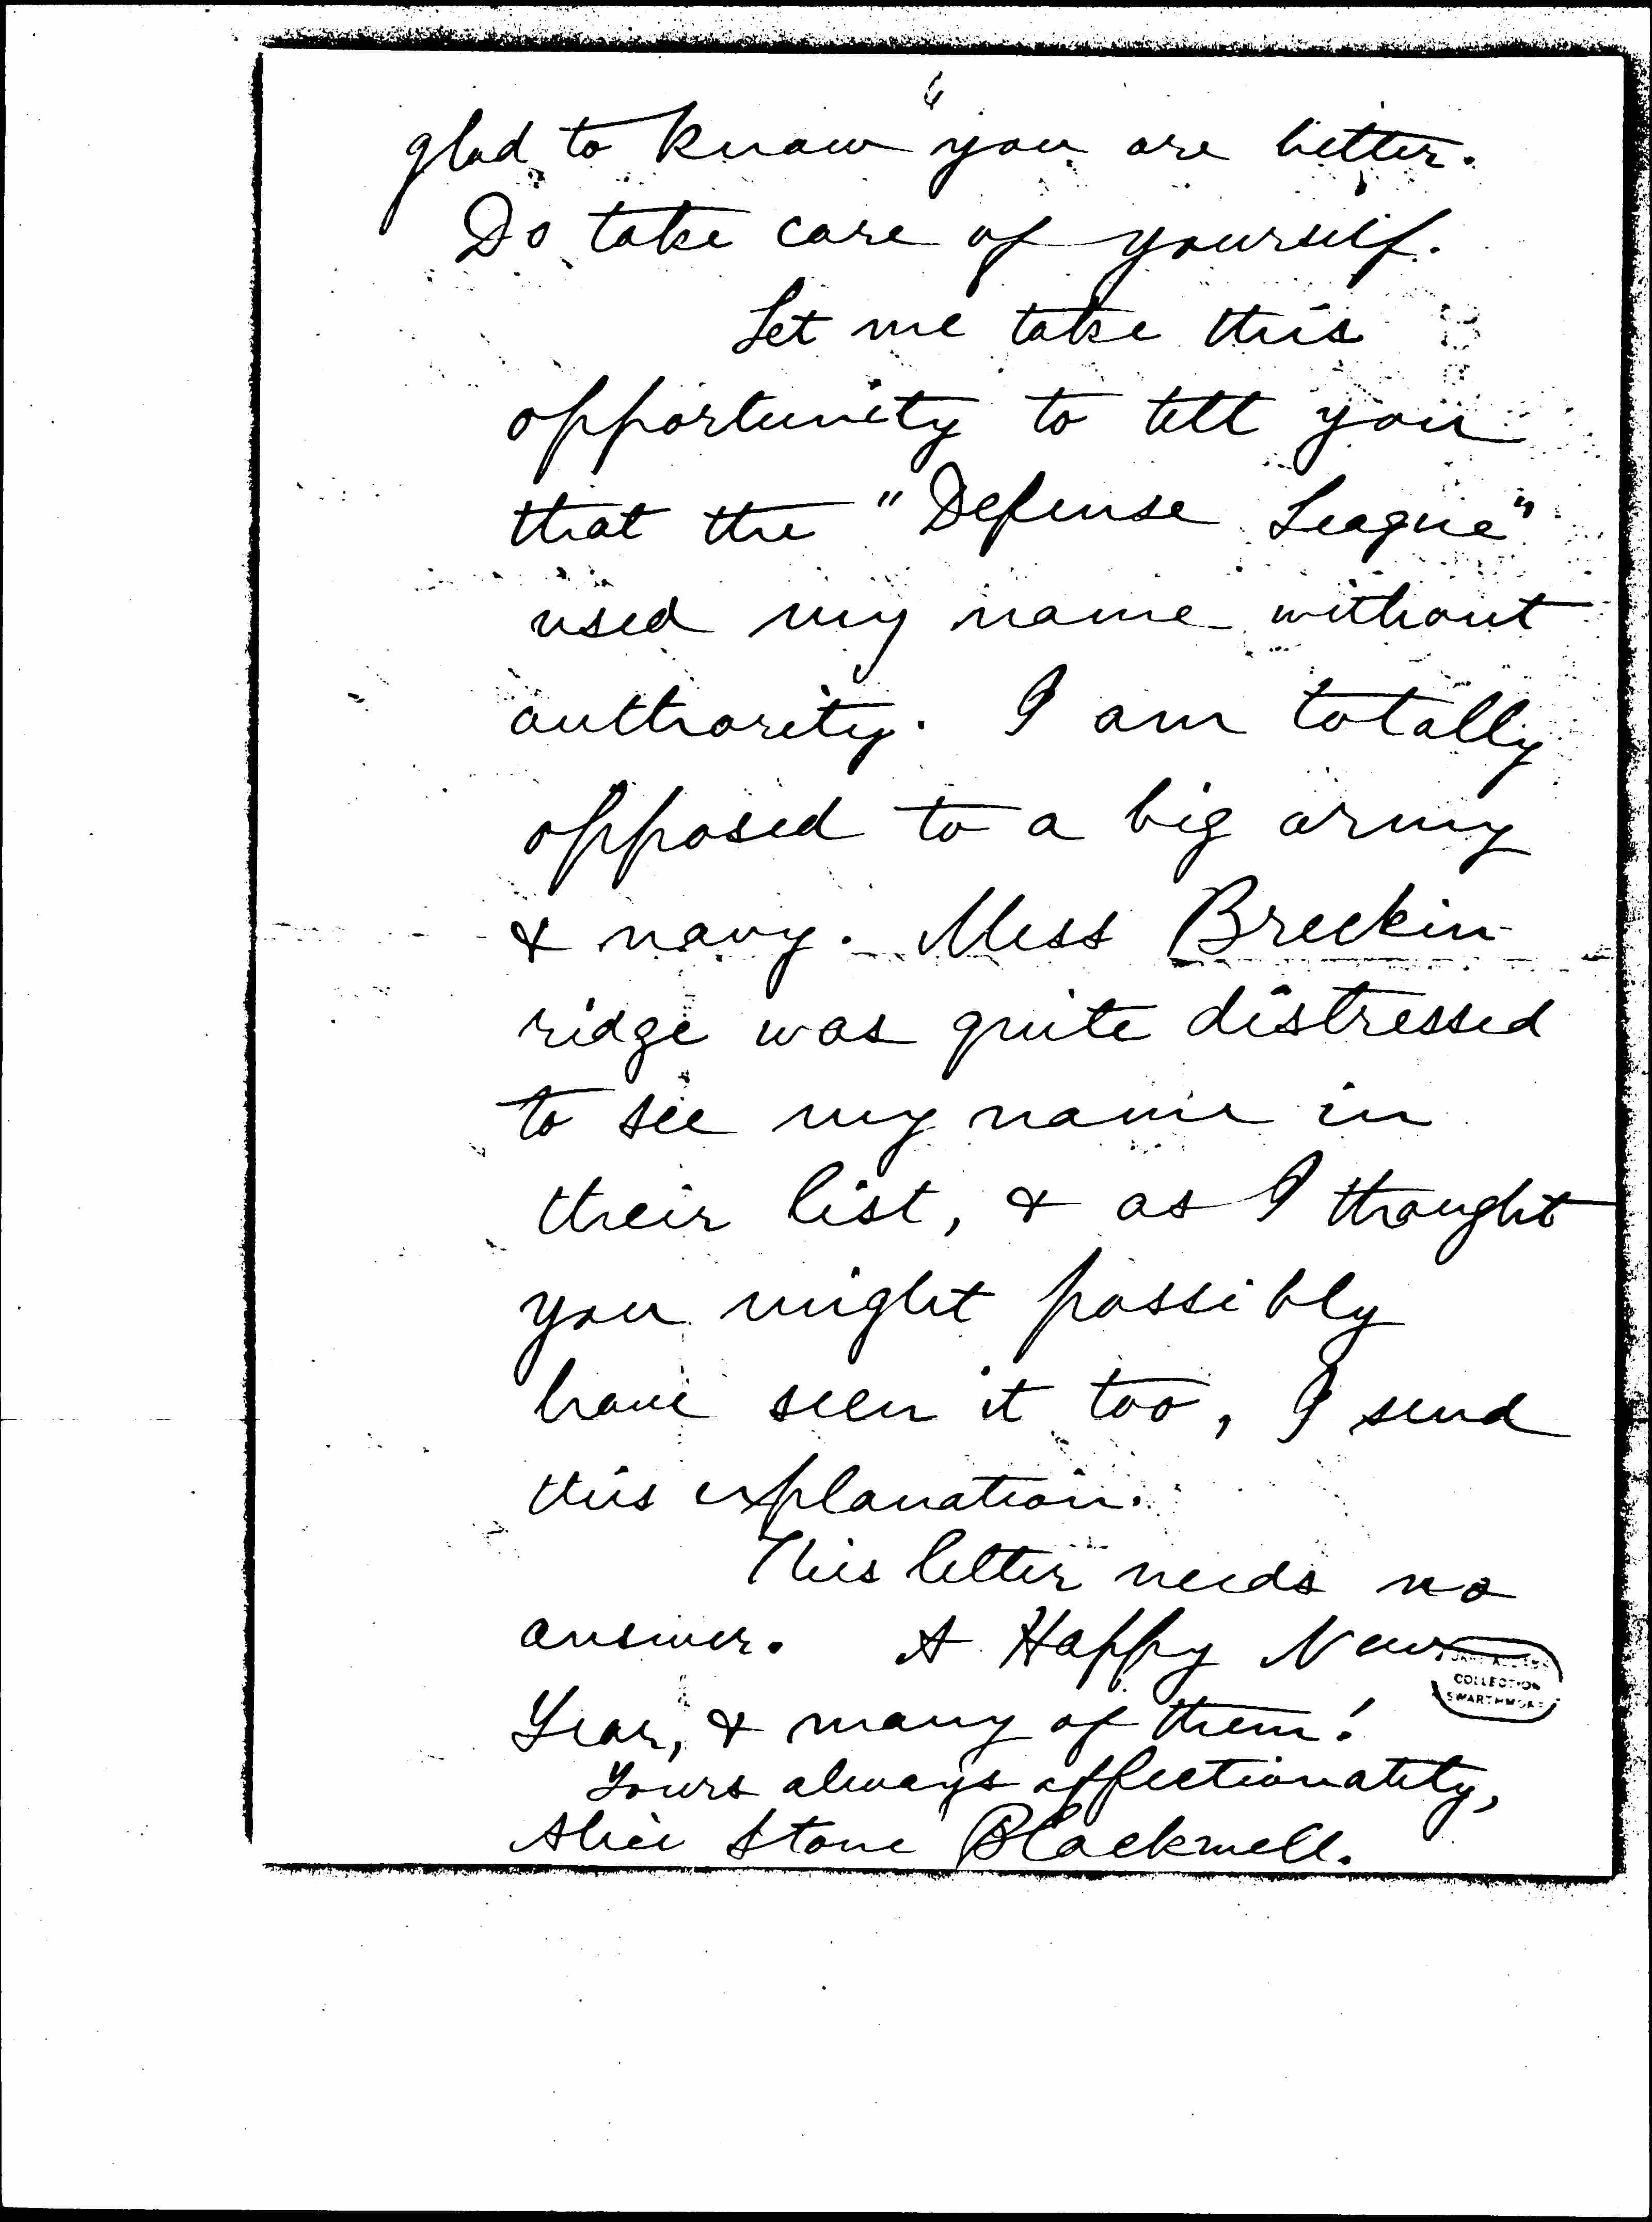 6
glad to know you are better.
Do take care of yourself.
Let me take this
opportunity to tell you
that the "Defense League"
used my name without
authority. I am totally
opposed to a big army
& navy. Miss Breckin-
ridge was quite distressed
to see my name in
their list, & as I thought
you might possibly
have seen it too, I send
this explanation.
This letter needs no
answer. A Happy New
JANE ADDAMS
COLLECTION
SWARTHMORE
Year, & many of them!
Yours always affectionately,
Alice Stone Blackwell.